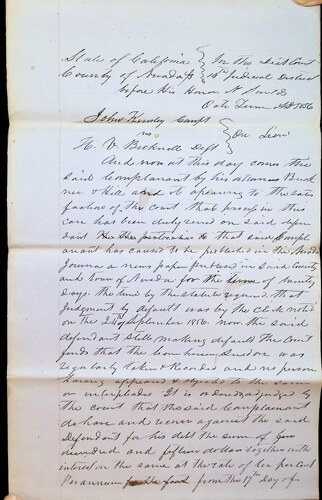 State of California } In the District Court
County of Nevada } 14th Judicial District
before His Honor N
Oct Term AD 1856
John Compt
vs } On Lien
H. V. Bicknell Deft
And now at this day comes the
said Complainant by his attorneys Buck
ner & Hill and it apearing to the satis
faction of the court that process in this
case has been duly served on said defen
dant that said Compl
ainant has caused to be published in the Nevada
Journal a news paper published in said County
and town of Nevada for the term of ninety
days the time by the statute required that
Judgment by default was by the clerk noted
on the 24th of September 1856 now the said
defendant still making default the Court
finds that the Lien herein was
regularly taken & Recorded and no person
having appeared & objected to the same
or interpleaded It is ordered adjudged by
the court that the said Complainant
do have and recover against the said
Defendant for his debt the sum of
hundred and fifteen dollars together with
interest on the same at the rate of ten per cent
Per annum from the 17th day of